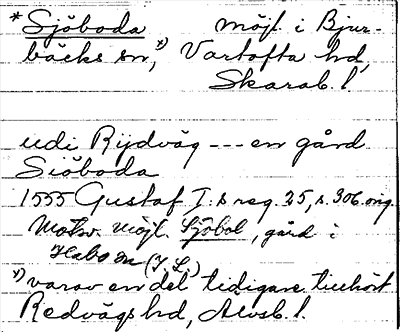 * Sjöboda möjl. i Bjur-
bäcks sn,*) Vartofta hd,
Skarab. l.
udi Rydvåg --- en gård
Siöboda
1555 Gustaf I:s reg. 25, s. 306 orig.
Motsv. möjl. Sjöbol, gård i
Habo sn (I. L.)
*) varav en del tidigare tillhört
Redvägs hd, Älvsb. l.